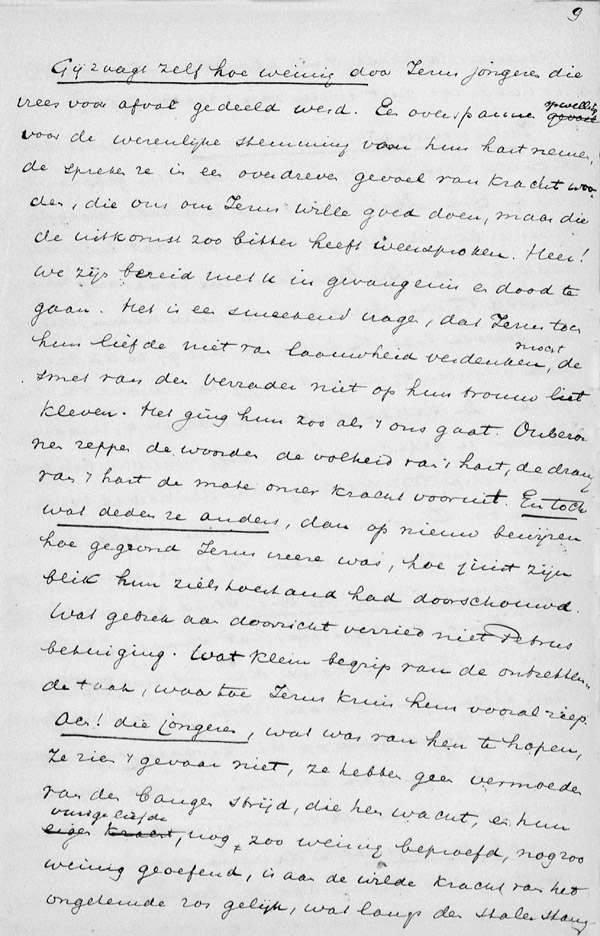 9
Gij zaagt zelf hoe weinig door Jezus jongeren die
vrees voor afval gedeeld werd. Een overspannen opwelling gevoel
voor de wezenlijke stemming van hun hart nemen,
de spreken ze in een overdreven gevoel van kracht woor-
den, die ons om Jezus wille goed doen, maar die
de uitkomst zoo bitter heeft weersproken. Heer!
we zijn bereid met U in gevangenis en dood te
gaan. Het is een smeekend vragen, dat Jezus toch
hun liefde niet van laauwheid verdenken mocht, de
smet van den verrader niet op hun trouw liet
kleven. Het ging hun zoo als 't ons gaat. Onberon
nen reppen de woorden de volheid van 't hart, de drang
van 't hart de mate onzer kracht vooruit. En toch
wat deden ze anders, dan op nieuw bewijzen
hoe gegrond Jezus vreeze was, hoe juist zijn
blik hun zielstoestand had doorschouwd.
Wat gebrek aan doorzicht verried niet Petrus
betuiging. Wat klein begrip van de ontzetten-
de taak, waartoe Jezus kruis hem vooral riep.
Ach! die jongeren, wat was van hen te hopen,
Ze zien 't gevaar niet, ze hebben geen vermoeden
van den bangen strijd, die hen wacht, en hun
vurige liefde
eigen kracht, nog zoo weinig beproefd, nog zoo
weinig geoefend, is aan de wilde kracht van het
ongetemde ros gelijk, wat langs den stalen stang